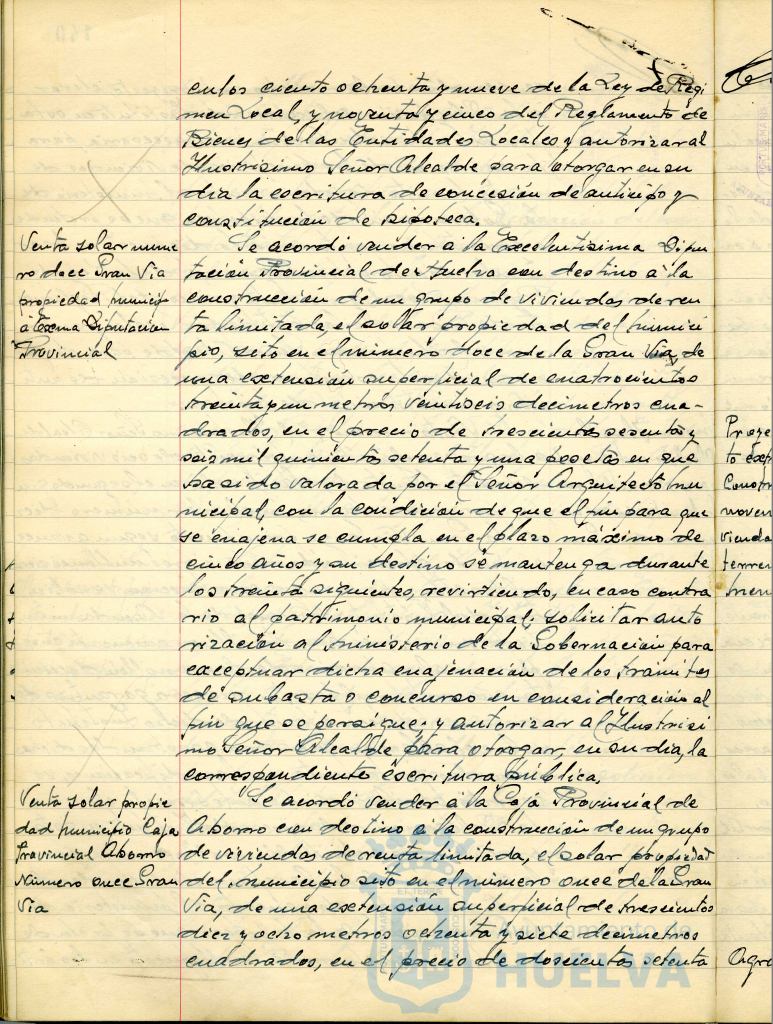 culos ciento ochenta y nueve de la Ley de Régi
men Local, y noventa y cinco del Reglamento de
Bienes de las Entidades Locales y autorizar al
Ilustrísimo Señor Alcalde para otorgar en su
día la escritura de concesión de anticipo y
constitución de hipoteca.
Venta solar núme
ro doce Gran Vía
propiedad municipi
a Excma Diputación
Provincial
Se acordó vender a la Excelentísima Dipu
tación Provincial de Huelva con destino a la
construcción de un grupo de viviendas de ren
ta limitada, el solar propiedad del munici
pio, sito en el número doce de la Gran Vía, de
una extensión superficial de cuatrocientos
treinta y un metros veintiseis decimetros cua-
drados, en el precio de trescientas sesenta y
seis mil quinientas setenta y una pesetas en que
ha sido valorada por el Señor Arquitecto mu
nicipal, con la condición de que el fin para que
se enajena se cumpla en el plazo máximo de
cinco años y su destino se mantenga durante
los treinta siguientes, revirtiendo, en caso contra
rio al patrimonio municipal; solicitar auto
rización al Ministerio de la Gobernación para
exceptuar dicha enajenación de los trámites
de subasta o concurso en consideración al
fin que se persigue; y autorizar al Ilustrísi
mo Señor Alcalde para otorgar, en su día, la
correspondiente escritura pública.
Venta solar propie
dad municipio Caja
Provincial Ahorro
Número once Gran
Vía
Se acordó vender a la Caja Provincial de
Ahorro con destino a la construcción de un grupo
de viviendas de renta limitada, el solar propiedad
del municipio sito en el número once de la Gran
Vía, de una extensión superficial de trescientos
diez y ocho metros ochenta y siete decimetros
cuadrados, en el precio de doscientas setenta
Proye
to
Constr
noven
vienda
terren
HUELVA